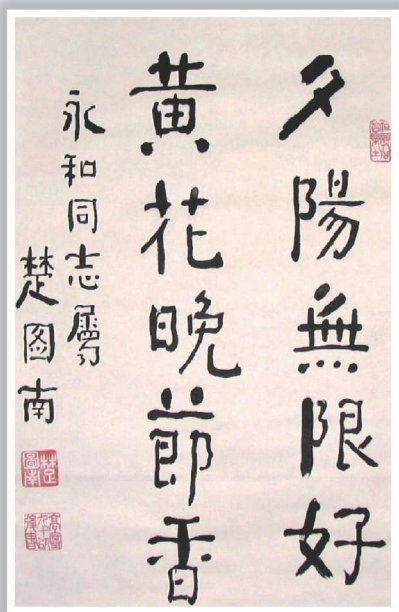 夕陽無限好
黄花晚節香
永和同志屬
楚图南
楚圖南